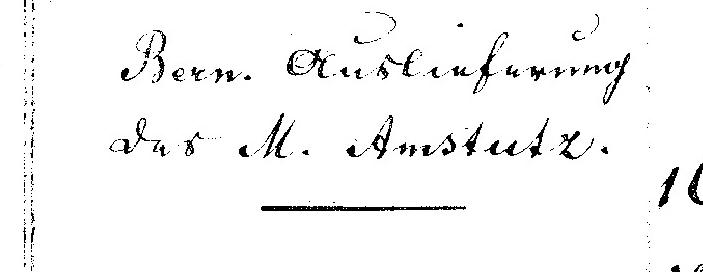 Bern. Auslieferung
des M. Amstutz.